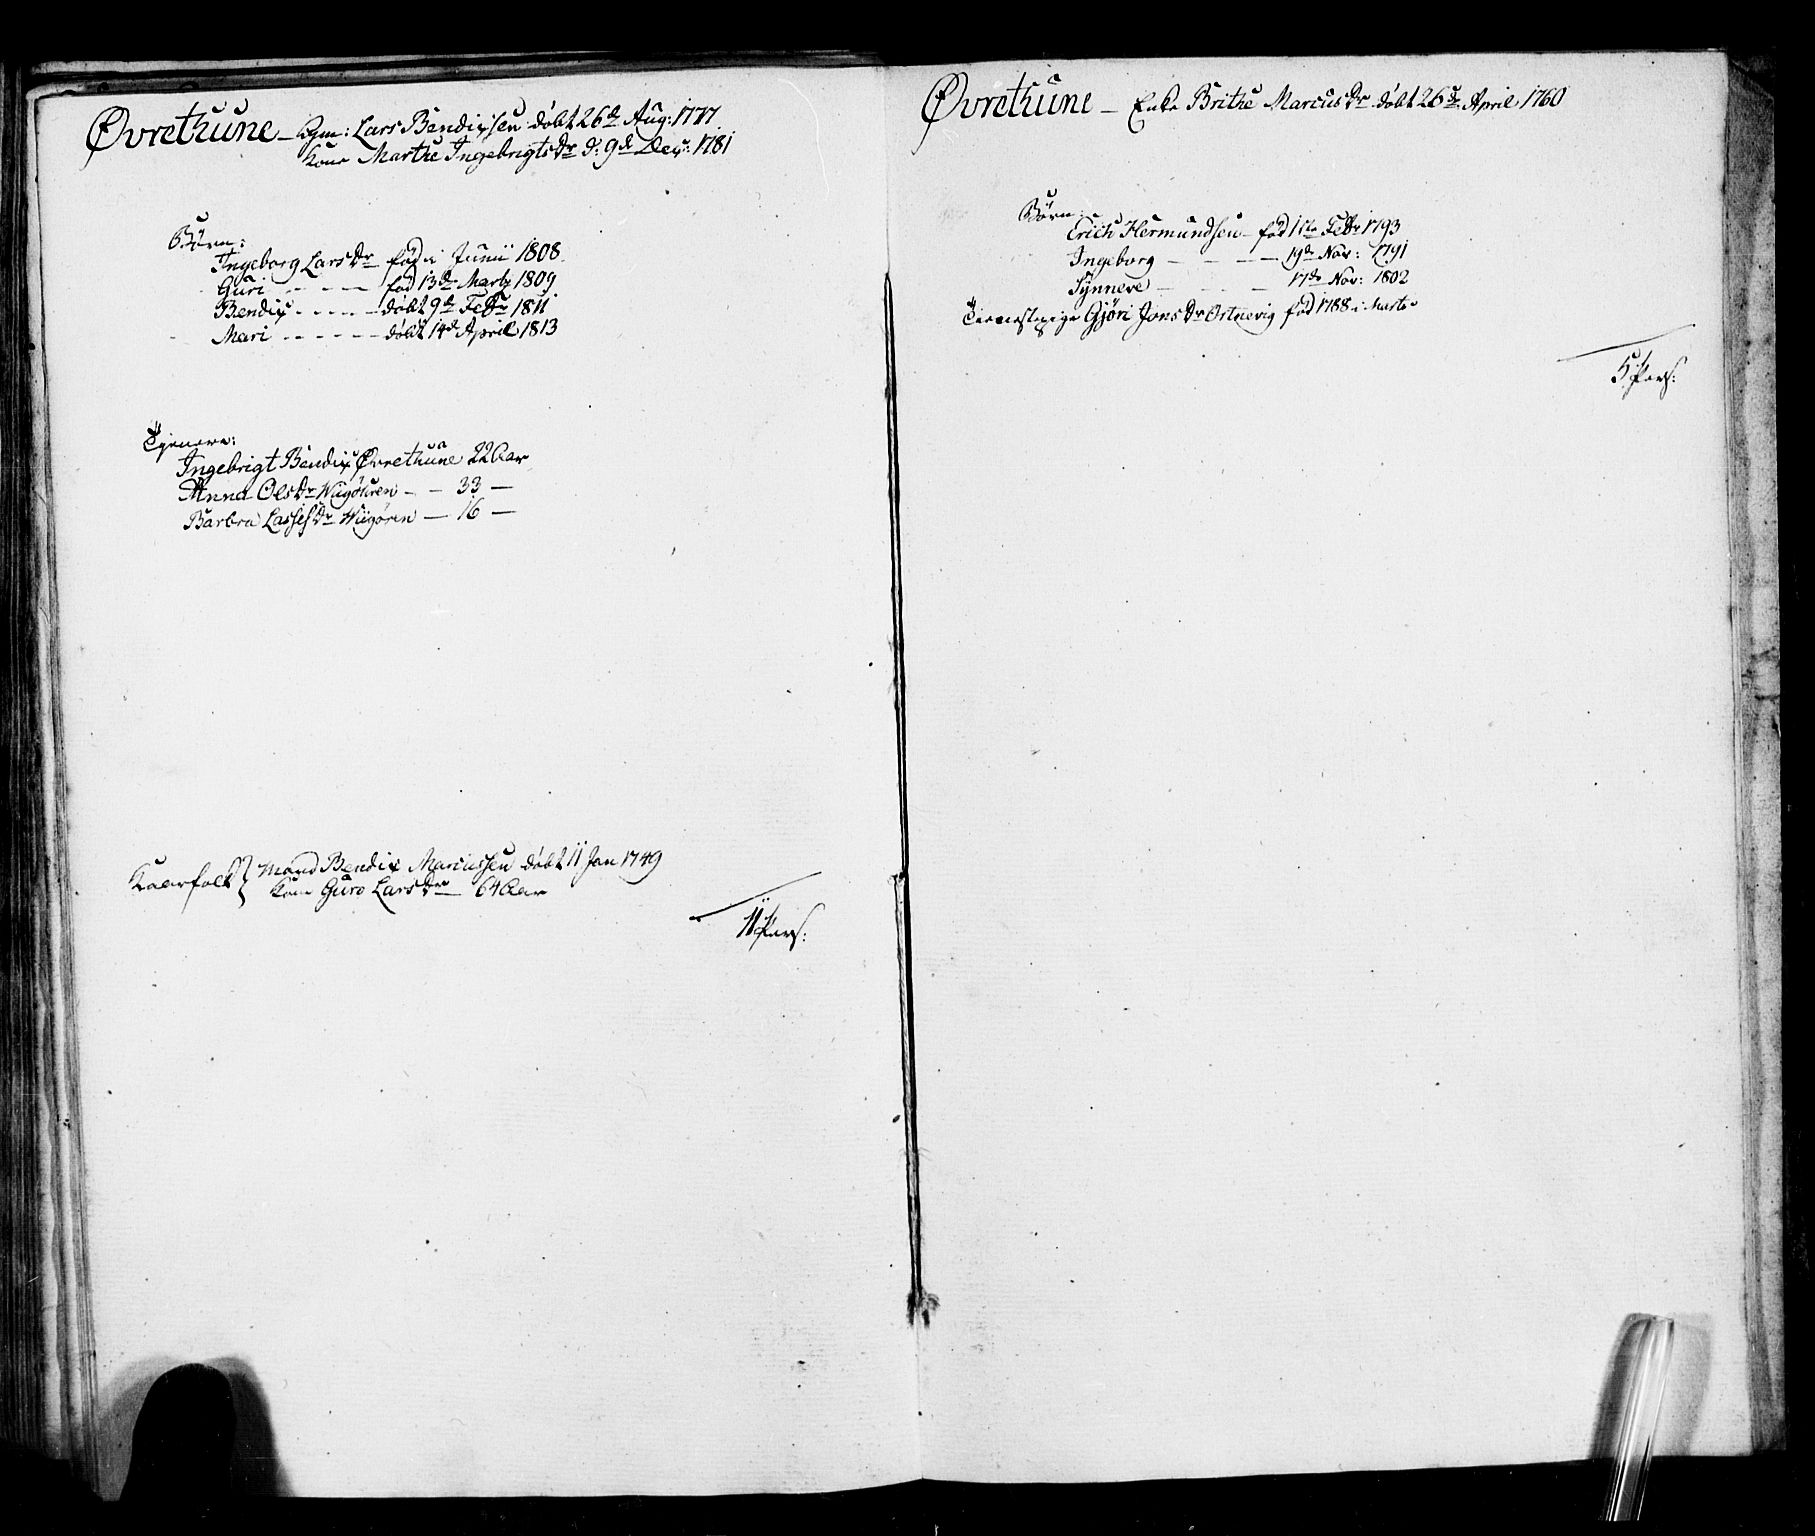 Øvrethune – Gm: Lars Bendixsen døbt 26de Aug: 1777
Kone Marthe Ingebrigtsdr d: 9de Decr: 1781
Børn:
Ingeborg Larsdr fød i Junii 1808
Guri - - - - fød 13de Marty 1809
Bendix - - - - - døbt 9de Febr 1811
Mari - - - - - døbt 14de April 1813
Tjenere:
Ingebrigt Bendix Øvrethune 22 Aar
Anna Olsdr Wiigøren - - 33 —
Barbra Lassesdr Wiigøren — 16 —
Kaarfolk } Mand Bendix Marcussen døbt 11 Jan 1749
Kone Guro Larsdr — 64 Aar
11 Pers:
Øvrethune – Enke Brithe Marcusdr døbt 26de April 1760
Børn:
Erich Hermundsen – fød Febr 1793
Ingeborg - - - - 19de Nov: 1791
Synneve - - - - 17de Nov: 1802
Tienestepige Gjøri Jonsdr Ortnevig fød 1788 i Marts
5 Pers: